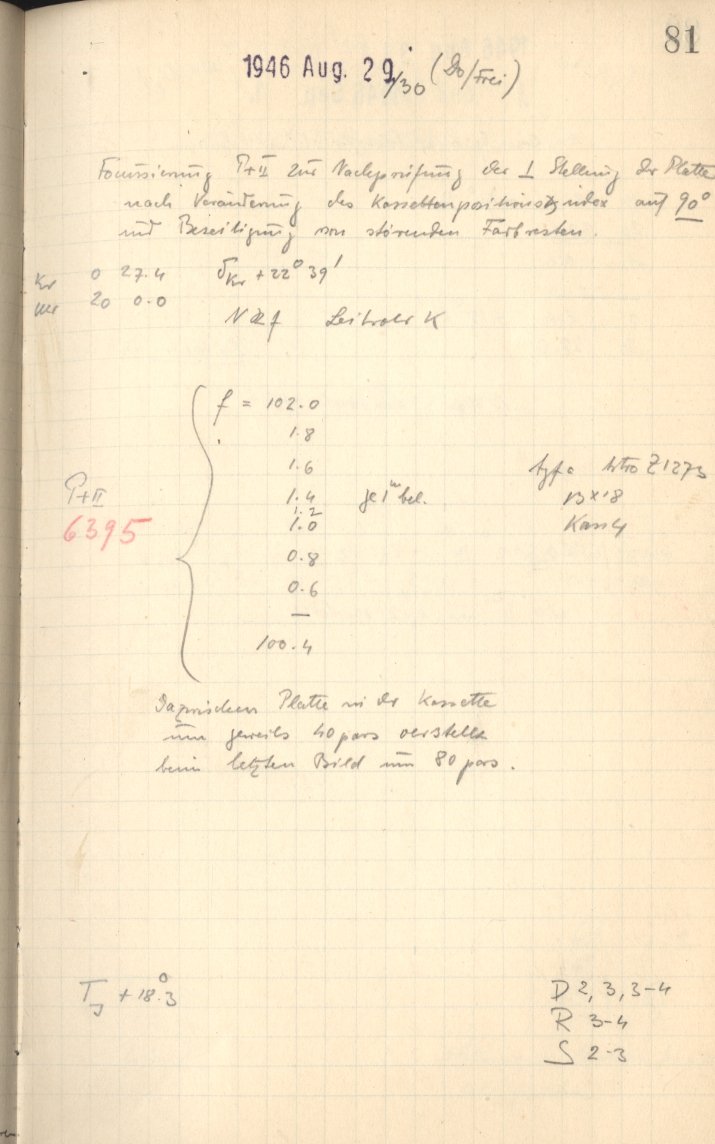 81
1946 Aug. 29/30 (Do/Frei)
Focussierung P+II zur Nachprüfung der ⊥ Stellung der Platte
nach Veränderung des Kassettenpositionsindex auf 90°
und Beseitigung von störenden Farbresten.
Kr 0 27.4 δKr +22° 39'
Ur 20 0.0
N f Leitrohr K
f = 102.0
1.8
1.6
1.4 je 1m bel.
1.2
1.0
0.8
0.6
—
100.4
P+II
6395
Agfa Astro Z1273
13 x 18
Kass 4
Dazwischen Platte in der Kassette
um jeweils 40 pars verstellt
beim letzten Bild um 80 pars.
TJ +18°.3
D 2, 3, 3-4
R 3-4
S 2-3